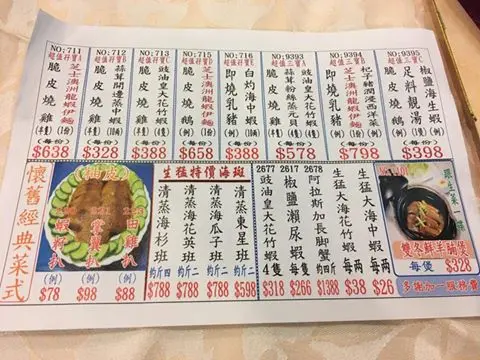 NO:711
超值孖寶A
芝士澳洲龍蝦伊麵(1份)
脆皮燒雞(半隻)
(每份)
$638
NO:712
超值孖寶B
蒜茸開邊蒸中蝦
脆皮燒雞(半隻)
(每份)
$328
NO:713
超值孖寶C
豉油皇大花竹蝦
脆皮燒雞(半隻)
(每份)
$388
NO:715
超值孖寶D
芝士澳洲龍蝦伊麵(1份)
脆皮燒鵝
(每份)
$658
NO:716
超值孖寶E
白灼海中蝦
即燒乳豬
(每份)
$388
NO:9393
超值三寶
豉油皇大花竹蝦
蒜茸粉絲蒸元貝
脆皮燒雞
(每份)
$578
NO:9394
超值三寶
芝士澳洲龍蝦伊麵
杞子豬潤浸西洋菜
即燒乳豬
(每份)
$798
NO:9395
超值三寶
椒鹽海生蝦
足料靚湯
脆皮燒鵝
(每份)
$398
懷舊經典菜式
(柚皮)
蝦籽扒
(例)
$78
(例)
$98
田雞扒
(例)
$88
生猛特價海斑
清蒸海杉班
約斤四
$788
清蒸海花英班
約斤二
$788
清蒸海瓜子班
約斤二
$788
清蒸東星班
約斤二
$598
2677
豉油皇大花竹蝦4隻
$318
2617
椒鹽瀨尿蝦每隻
$266
2678
阿拉斯加長脚蟹
約四斤
$1388
生猛大海花竹蝦
每両
$38
生猛大海中蝦
每両
$26
跟生菜一碟
雙冬鮮羊腩煲
每煲
$328
多謝加一服務費